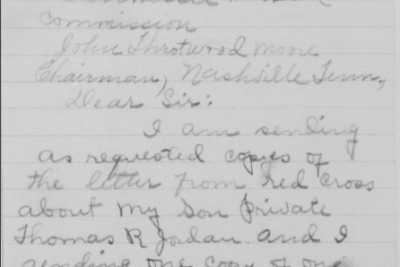 Commission
John Throtwood Moore
Chairman, Nashville Tenn.,
Dear Sir:
I am sending
as requested copies of
the letter from red cross
about my son private
Thomas R Jordan. and I
sending one copy of one